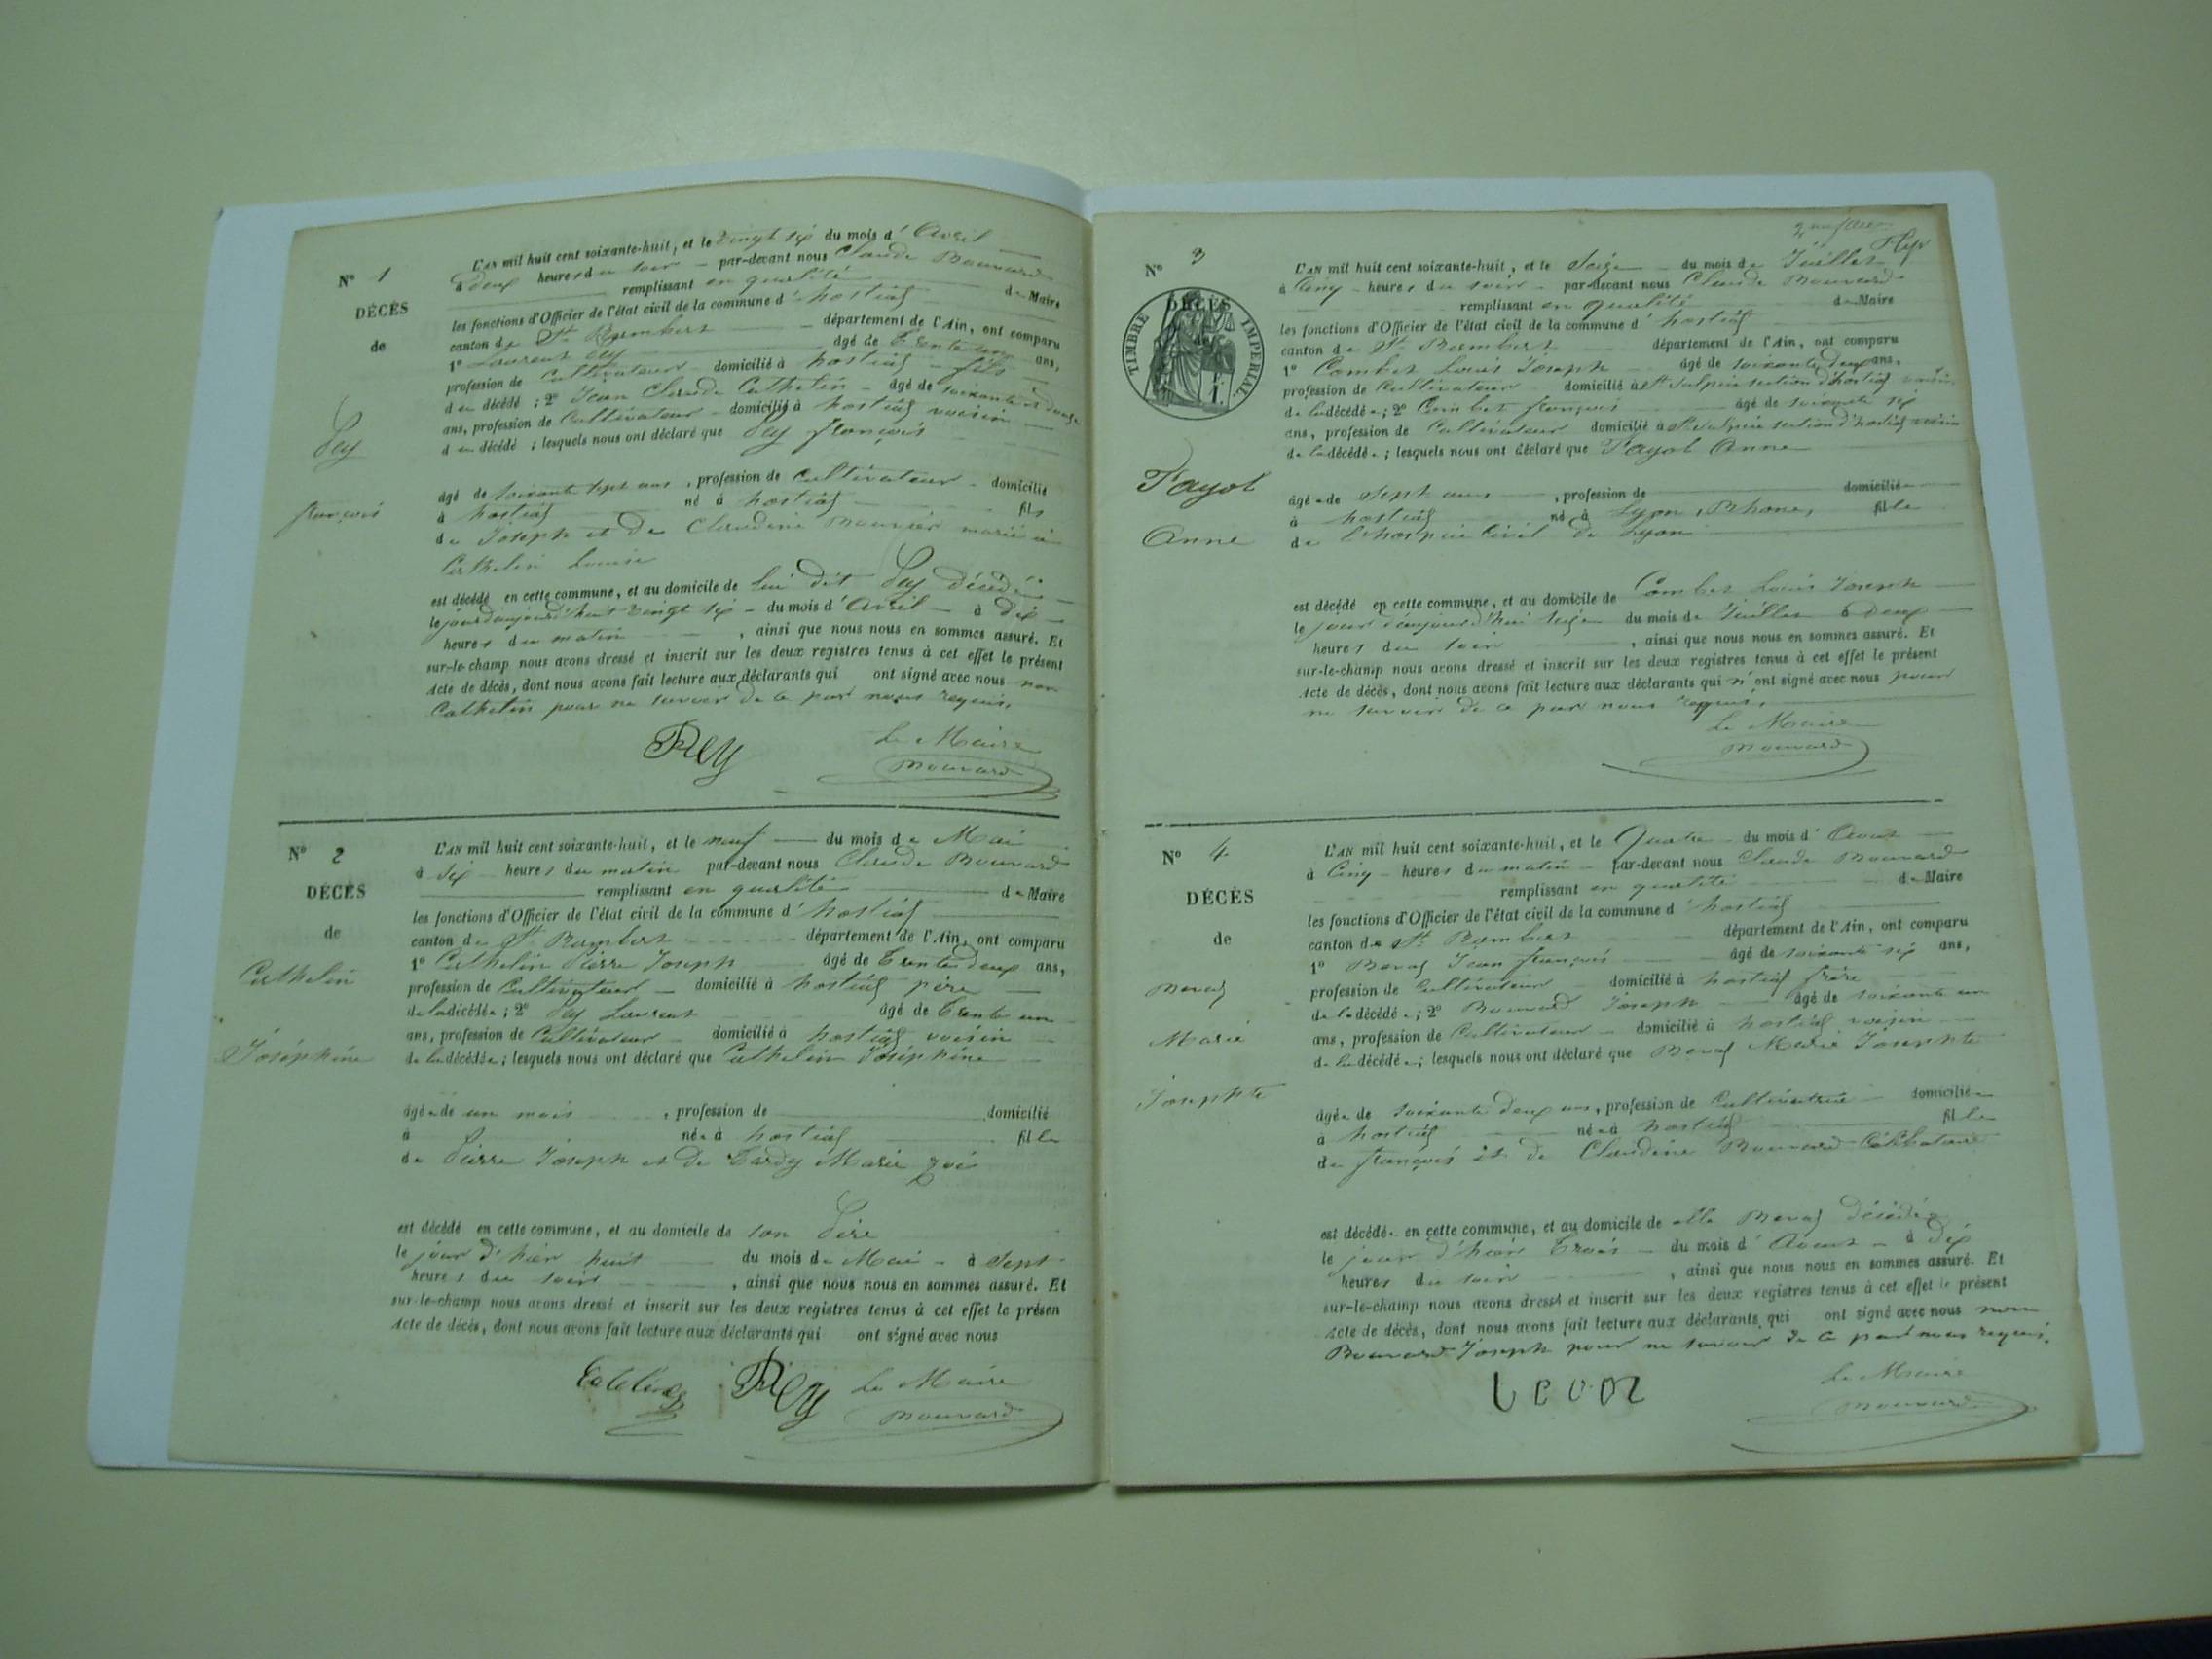 N° 1
DÉCÈS
de
françois
L'AN mil huit cent soixante-huit, et le Vingt six du mois d'Avril
à deux heures du soir par-devant nous Claude Bouvard
remplissant en qualité de Maire
les fonctions d'Officier de l'état civil de la commune d'hostiaz
canton de St Rambert département de l'Ain, ont comparu
1° Laurent âgé de Trente un ans,
profession de Cultivateur domicilié à hostiaz fils
du décédé ; 2° Jean Claude Cathelin âgé de soixante et douze
ans, profession de Cultivateur domicilié à hostiaz voisin
du décédé ; lesquels nous ont déclaré que françois
âgé de soixante sept ans , profession de Cultivateur domicilié
à hostiaz né à hostiaz fils
de Joseph et de Claudine marié à
Cathelin Louise
est décédé en cette commune, et au domicile de lui dit décédé
le jour d'aujourd'hui vingt six du mois d'Avril à Dix
heures du matin , ainsi que nous nous en sommes assuré. Et
sur-le-champ nous avons dressé et inscrit sur les deux registres tenus à cet effet le présent
Acte de décès, dont nous avons fait lecture aux déclarants qui ont signé avec nous non
Cathelin pour ne savoir de ce par nous requis.
Rey
Le Maire
Bouvard
N° 2
DÉCÈS
de
Cathelin
Joséphine
L'AN mil huit cent soixante-huit, et le neuf du mois de Mai
à Six heures du matin par-devant nous Claude Bouvard
remplissant en qualité de Maire
les fonctions d'Officier de l'état civil de la commune d'hostiaz
canton de St Rambert département de l'Ain, ont comparu
1° Cathelin Pierre Joseph âgé de Trente deux ans,
profession de Cultivateur domicilié à hostiaz père
de la décédée ; 2° Laurent âgé de Trente un
ans, profession de Cultivateur domicilié à hostiaz voisin
de la décédée ; lesquels nous ont déclaré que Cathelin Joséphine
âgée de un mois , profession de domicilié
à née à hostiaz fille
de Pierre Joseph et de Tardy Marie Zoé
est décédé en cette commune, et au domicile de son Père
le jour d'hier huit du mois de Mai à Sept
heures du soir , ainsi que nous nous en sommes assuré. Et
sur-le-champ nous avons dressé et inscrit sur les deux registres tenus à cet effet le présen
Acte de décès, dont nous avons fait lecture aux déclarants qui ont signé avec nous
Rey
Le Maire
Bouvard
N° 3
TIMBRE IMPÉRIAL
DÉCÈS
de
Payot
Anne
L'AN mil huit cent soixante-huit, et le Seize du mois de Juillet
à Cinq heures du soir par-devant nous Claude Bouvard
remplissant en qualité de Maire
les fonctions d'Officier de l'état civil de la commune d'hostiaz
canton de St Rambert département de l'Ain, ont comparu
1° Combet Louis Joseph âgé de soixante deux ans,
profession de Cultivateur domicilié à St Sulpice section d'hostiaz voisin
de la décédée ; 2° Combet françois âgé de soixante six
ans, profession de Cultivateur domicilié à St Sulpice section d'hostiaz voisin
de la décédée ; lesquels nous ont déclaré que Payot Anne
âgée de Sept ans , profession de domiciliée
à hostiaz né à Lyon, Rhône, fille
de l'hospice Civil de Lyon
est décédé en cette commune, et au domicile de Combet Louis Joseph
le jour d'aujourd'hui seize du mois de Juillet à Deux
heures du soir , ainsi que nous nous en sommes assuré. Et
sur-le-champ nous avons dressé et inscrit sur les deux registres tenus à cet effet le présent
Acte de décès, dont nous avons fait lecture aux déclarants qui n'ont signé avec nous pour
ne savoir de ce par nous requis.
Le Maire
Bouvard
N° 4
DÉCÈS
de
Marie
Josephte
L'AN mil huit cent soixante-huit, et le Quatre du mois d'Aout
à Cinq heures du matin par-devant nous Claude Bouvard
remplissant en qualité de Maire
les fonctions d'Officier de l'état civil de la commune d'hostiaz
canton de St Rambert département de l'Ain, ont comparu
1° Jean françois âgé de soixante six ans,
profession de Cultivateur domicilié à hostiaz frère
de la décédée ; 2° Bouvard Joseph âgé de soixante un
ans, profession de Cultivateur domicilié à hostiaz voisin
de la décédée ; lesquels nous ont déclaré que Marie Josephte
âgée de soixante deux ans, profession de Cultivatrice domiciliée
à hostiaz née à hostiaz fille
de françois et de Claudine Bouvard Célibataire
est décédée en cette commune, et au domicile de elle décédée
le jour d'hier Trois du mois d'Aout à Dix
heures du soir , ainsi que nous nous en sommes assuré. Et
sur-le-champ nous avons dressé et inscrit sur les deux registres tenus à cet effet le présent
Acte de décès, dont nous avons fait lecture aux déclarants qui ont signé avec nous non
Bouvard Joseph pour ne savoir de ce par nous requis.
Le Maire
Bouvard